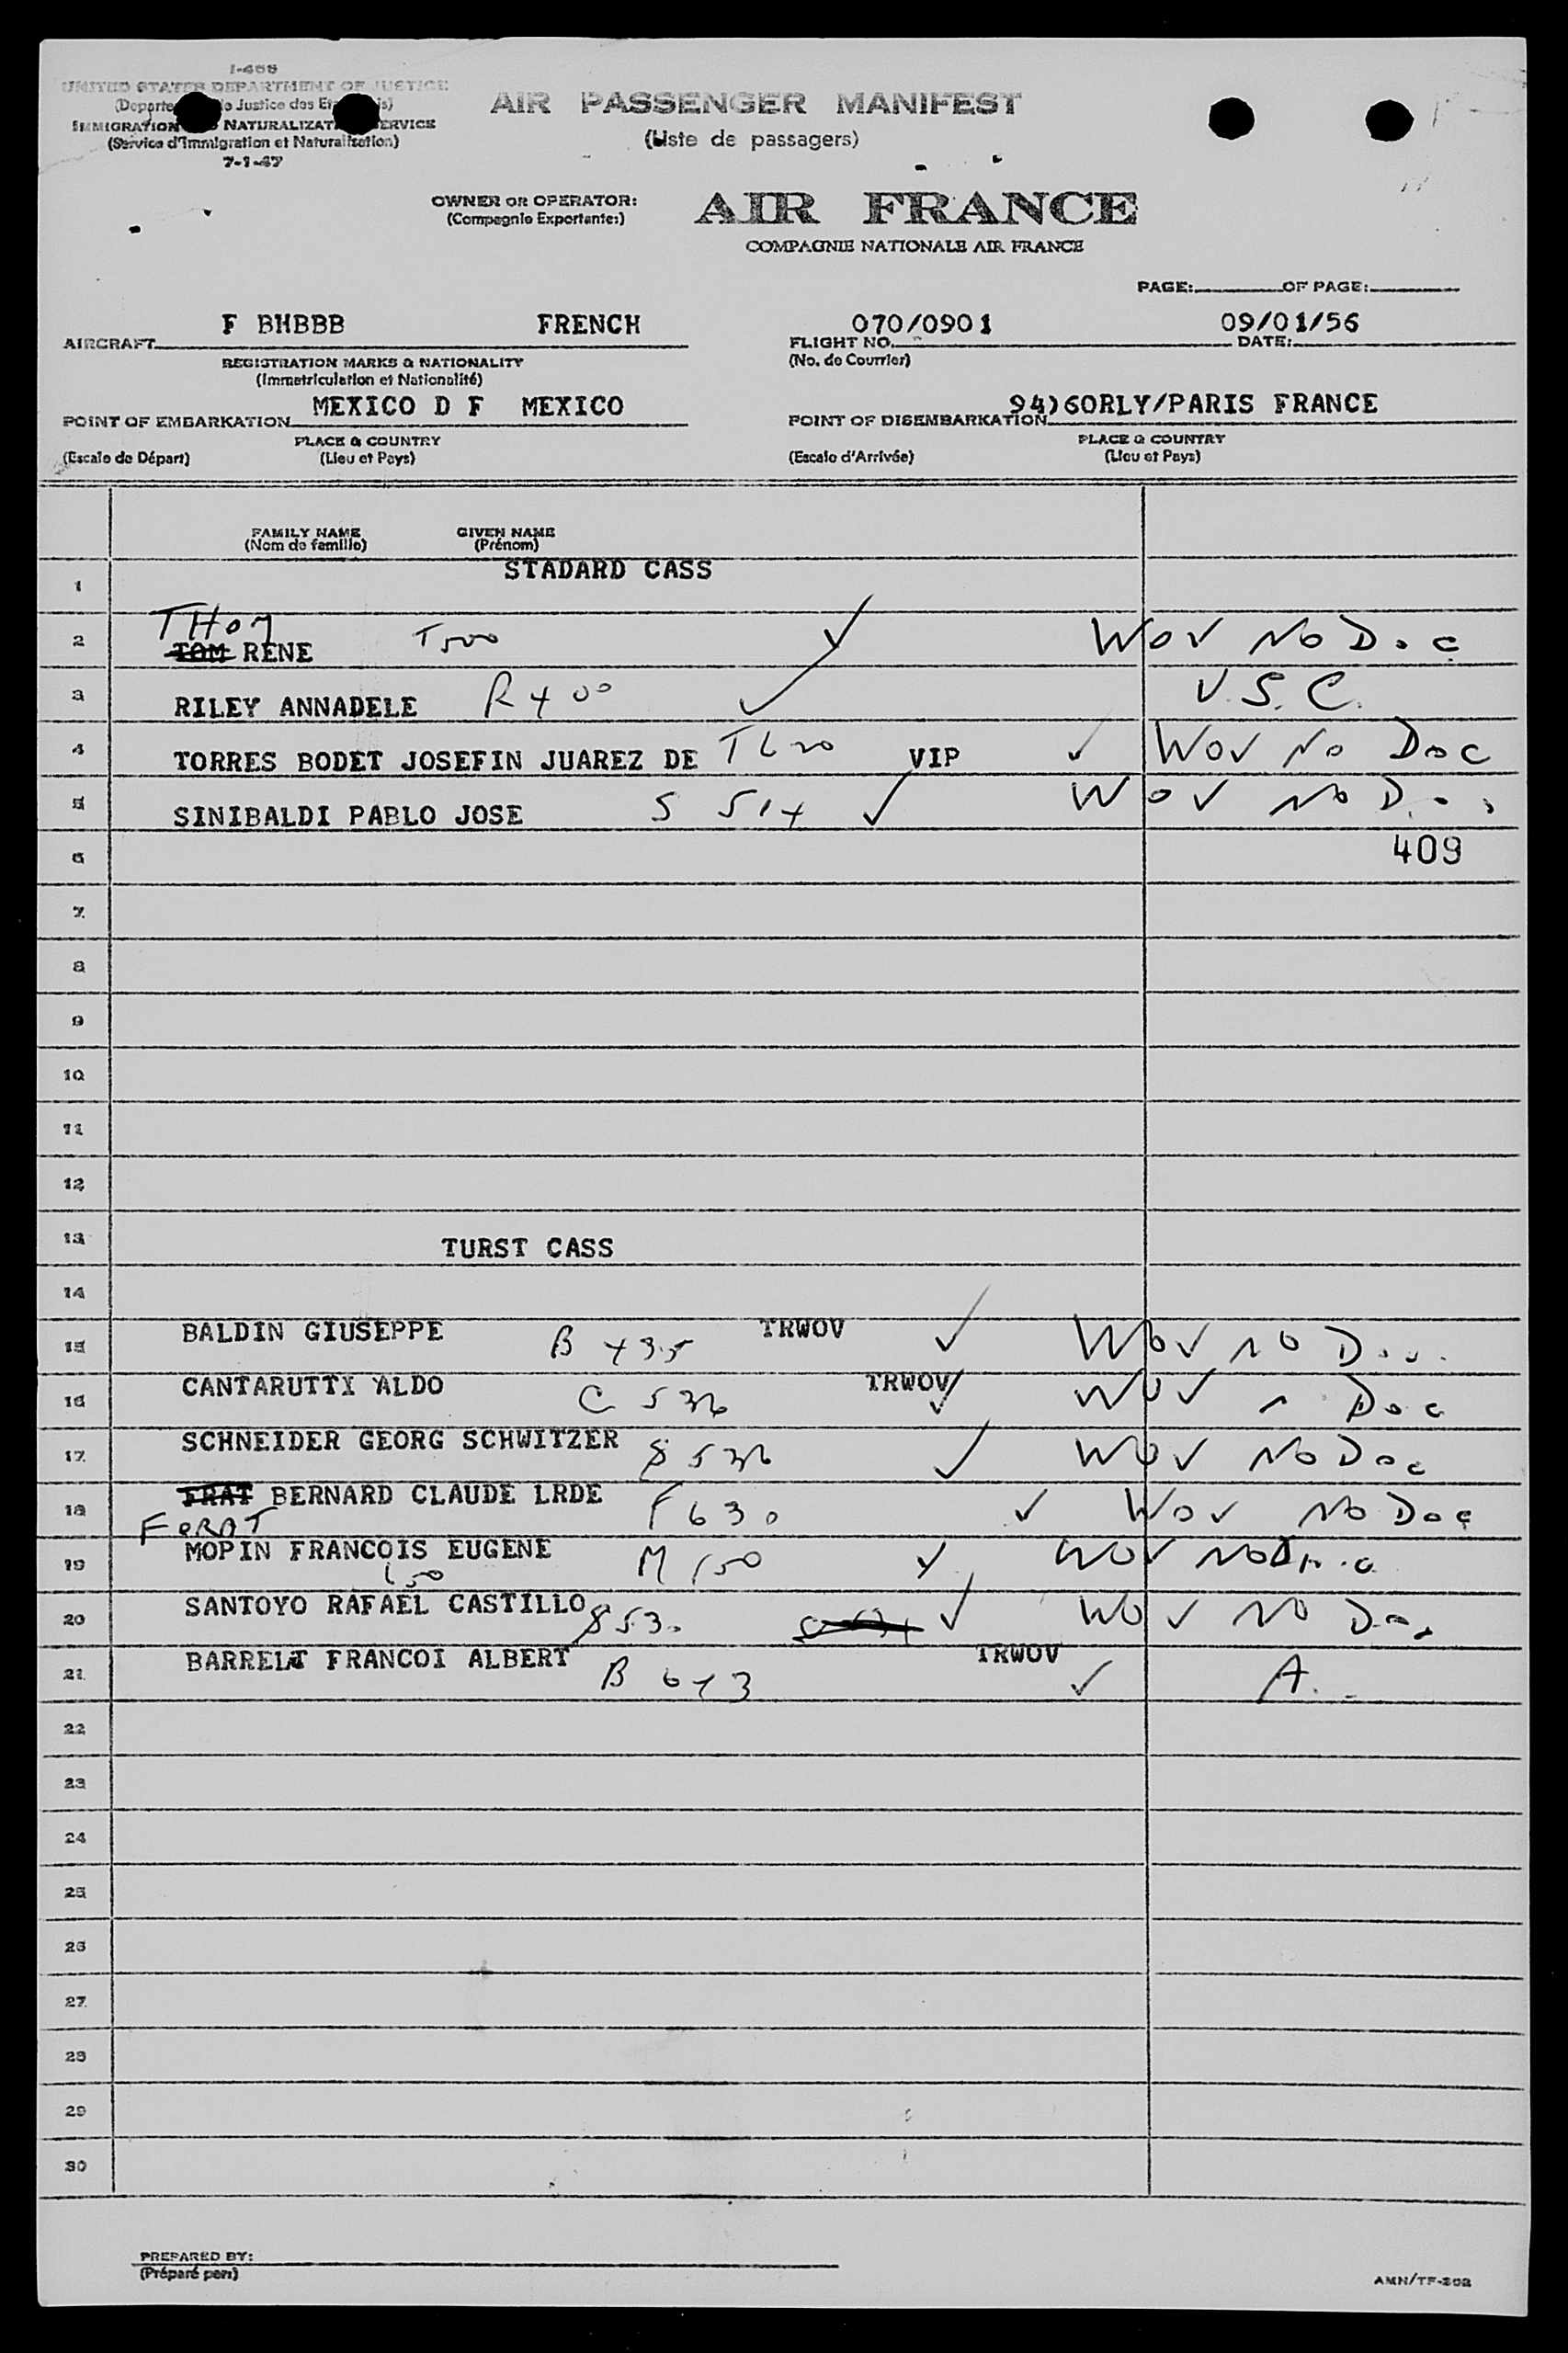 I-466
UNITED STATES DEPARTMENT OF JUSTICE
IMMIGRATION NATURALIZAT ERVICE
(Service d'Immigration et Naturalisation)
7-1-47
AIR PASSENGER MANIFEST
(Liste de passagers)
OWNER OR OPERATOR:
(Compagnie Exportante:)
AIR FRANCE
COMPAGNIE NATIONALE AIR FRANCE
PAGE: OF PAGE:
F BHBBB FRENCH 070/0901 09/01/56
AIRCRAFT FLIGHT NO. DATE:
REGISTRATION MARKS & NATIONALITY (No. de Courrier)
(Immatriculation et Nationalité)
MEXICO D F MEXICO 94)6ORLY/PARIS FRANCE
POINT OF EMBARKATION POINT OF DISEMBARKATION
PLACE & COUNTRY PLACE & COUNTRY
(Escale de Départ) (Lieu et Pays) (Escale d'Arrivée) (Lieu et Pays)
FAMILY NAME GIVEN NAME
(Nom de famille) (Prénom)
1 STADARD CASS
THOM
2 TOM RENE T500 ✓ WOV No Doc
3 RILEY ANNADELE R400 ✓ U.S.C.
4 TORRES BODET JOSEFIN JUAREZ DE T620 VIP ✓ WOV No Doc
5 SINIBALDI PABLO JOSE S 514 ✓ WOV No Doc
6 409
7
8
9
10
11
12
13 TURST CASS
14
15 BALDIN GIUSEPPE B 435 TRWOV ✓ WOV No Doc
16 CANTARUTTI ALDO C 536 TRWOV ✓ WOV n Doc
17 SCHNEIDER GEORG SCHWITZER S 536 ✓ WOV No Doc
18 FRAT BERNARD CLAUDE LRDE F 630 ✓ WOV No Doc
FERAT
19 MOPIN FRANCOIS EUGENE M 150 ✓ WOV No Doc
150
20 SANTOYO RAFAEL CASTILLO S 530 ✓ WOV No Doc
21 BARRELT FRANCOI ALBERT B 643 TRWOV ✓ A.
22
23
24
25
26
27
28
29
30
PREPARED BY:
(Préparé par:)
AMN/TF-302